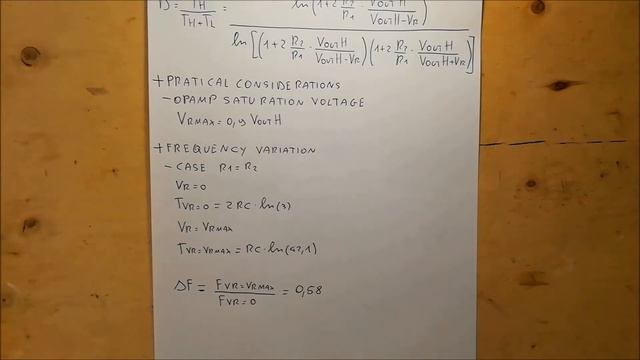 D = TH / (TH+TL) = ln(1+2 R2/R1 · VOUTH/(VOUTH-VR)) / ln[(1+2 R2/R1 · VOUTH/(VOUTH-VR))(1+2 R2/R1 · VOUTH/(VOUTH+VR))]
+ PRATICAL CONSIDERATIONS
- OPAMP SATURATION VOLTAGE
VRMAX = 0,9 VOUTH
+ FREQUENCY VARIATION
- CASE R1=R2
VR=0
TVR=0 = 2RC·ln(3)
VR=VRMAX
TVR=VRMAX = RC·ln(42,1)
ΔF = FVR=VRMAX / FVR=0 = 0,58